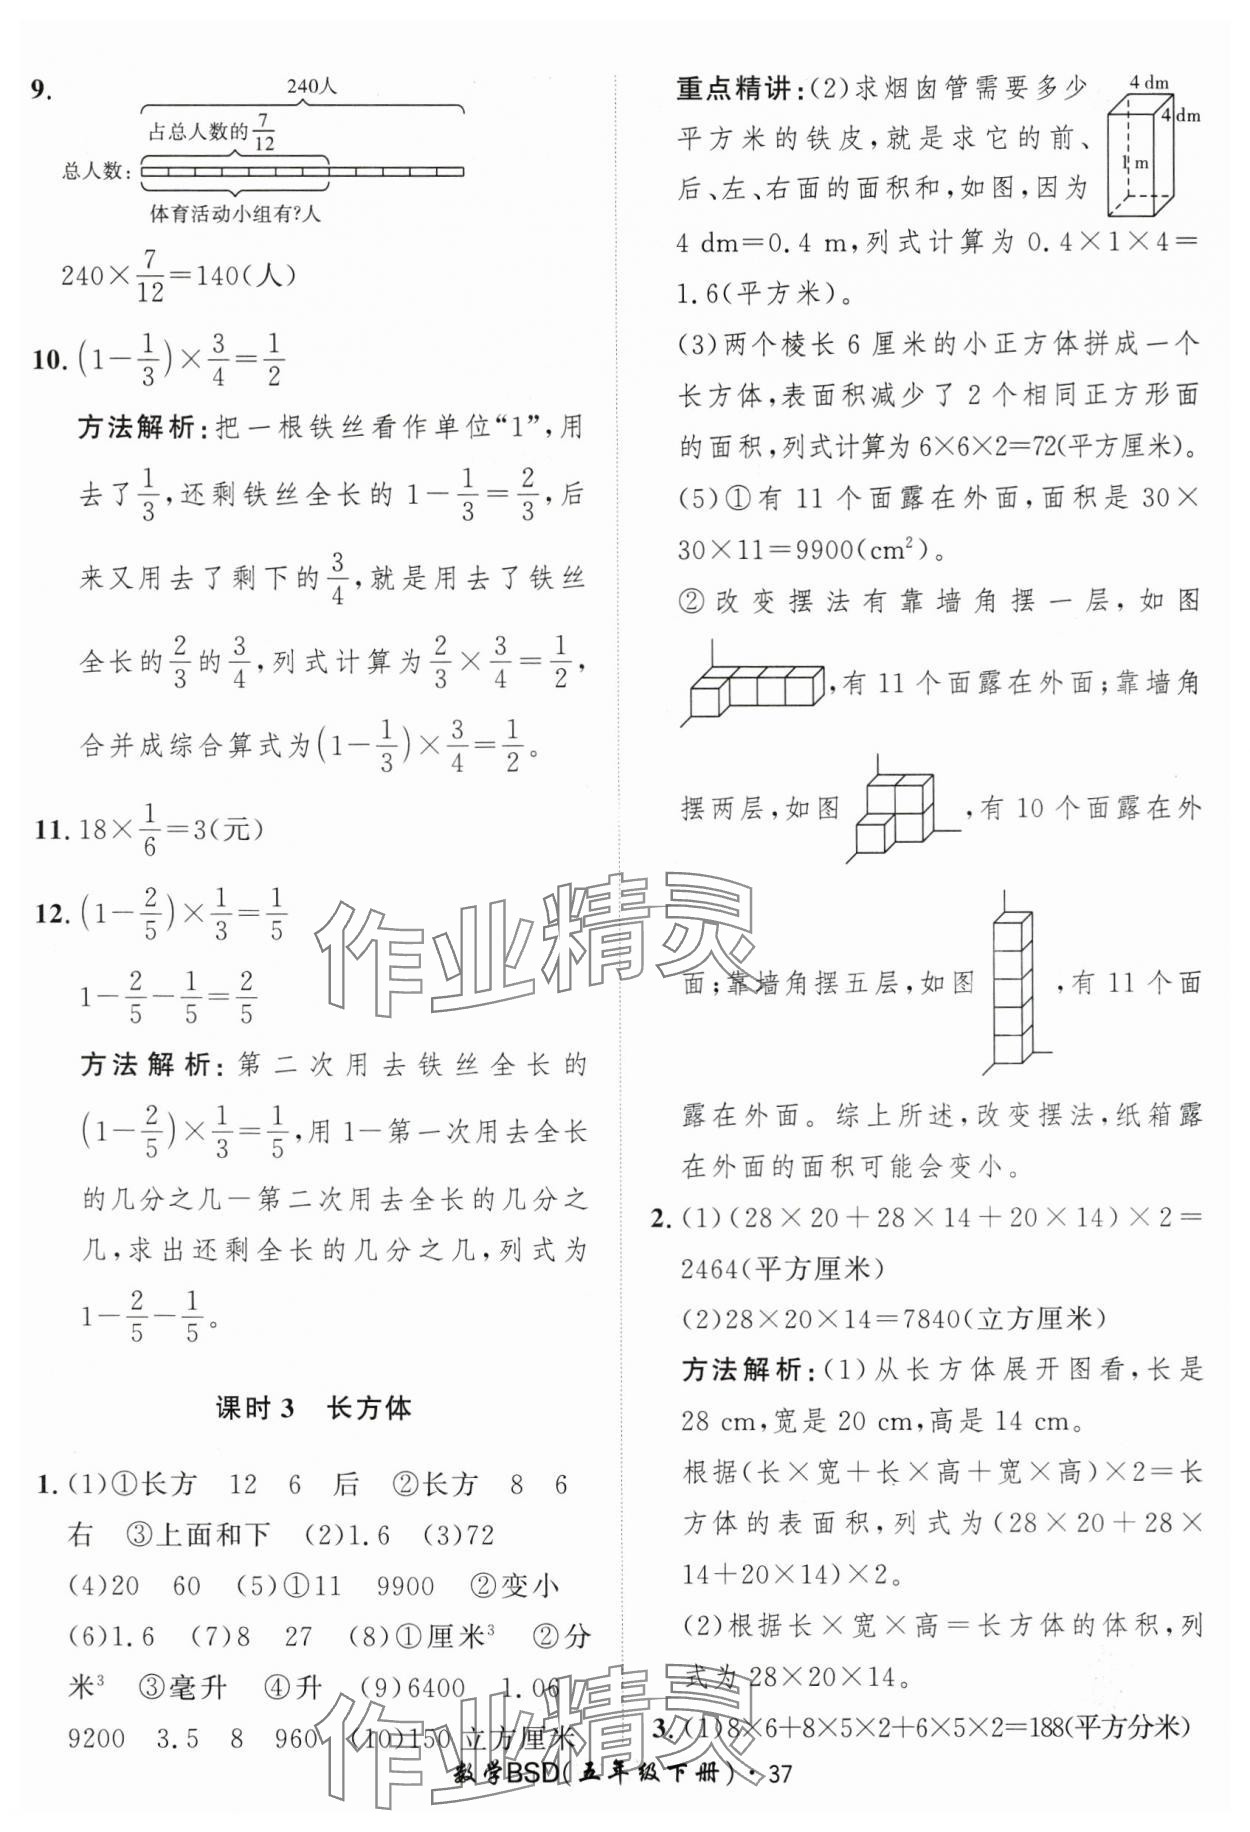 9.
240人
占总人数的7/12
总人数:
体育活动小组有?人
240×7/12=140(人)
10. (1-1/3)×3/4=1/2
方法解析:把一根铁丝看作单位“1”,用
去了1/3,还剩铁丝全长的 1-1/3=2/3,后
来又用去了剩下的3/4,就是用去了铁丝
全长的2/3的3/4,列式计算为2/3×3/4=1/2,
合并成综合算式为(1-1/3)×3/4=1/2。
11. 18×1/6=3(元)
12. (1-2/5)×1/3=1/5
1-2/5-1/5=2/5
方法解析:第二次用去铁丝全长的
(1-2/5)×1/3=1/5,用1-第一次用去全长
的几分之几-第二次用去全长的几分之
几,求出还剩全长的几分之几,列式为
1-2/5-1/5。
课时3 长方体
1. (1)①长方 12 6 后 ②长方 8 6
右 ③上面和下 (2)1.6 (3)72
(4)20 60 (5)①11 9900 ②变小
(6)1.6 (7)8 27 (8)①厘米³ ②分
米³ ③毫升 ④升 (9)6400 1.06
9200 3.5 8 960 (10)150立方厘米
重点精讲:(2)求烟囱管需要多少
平方米的铁皮,就是求它的前、
后、左、右面的面积和,如图,因为
4 dm
4 dm
1 m
4 dm=0.4 m,列式计算为 0.4×1×4=
1.6(平方米)。
(3)两个棱长 6 厘米的小正方体拼成一个
长方体,表面积减少了 2 个相同正方形面
的面积,列式计算为 6×6×2=72(平方厘米)。
(5)①有 11 个面露在外面,面积是 30×
30×11=9900(cm²)。
②改变摆法有靠墙角摆一层,如图
,有 11 个面露在外面;靠墙角
摆两层,如图 ,有 10 个面露在外
面;靠墙角摆五层,如图 ,有 11 个面
露在外面。综上所述,改变摆法,纸箱露
在外面的面积可能会变小。
2. (1)(28×20+28×14+20×14)×2=
2464(平方厘米)
(2)28×20×14=7840(立方厘米)
方法解析:(1)从长方体展开图看,长是
28 cm,宽是 20 cm,高是 14 cm。
根据(长×宽+长×高+宽×高)×2=长
方体的表面积,列式为(28×20+28×
14+20×14)×2。
(2)根据长×宽×高=长方体的体积,列
式为 28×20×14。
3. (1)8×6+8×5×2+6×5×2=188(平方分米)
作业精灵
作业精灵
数学BSD(五年级下册)·37